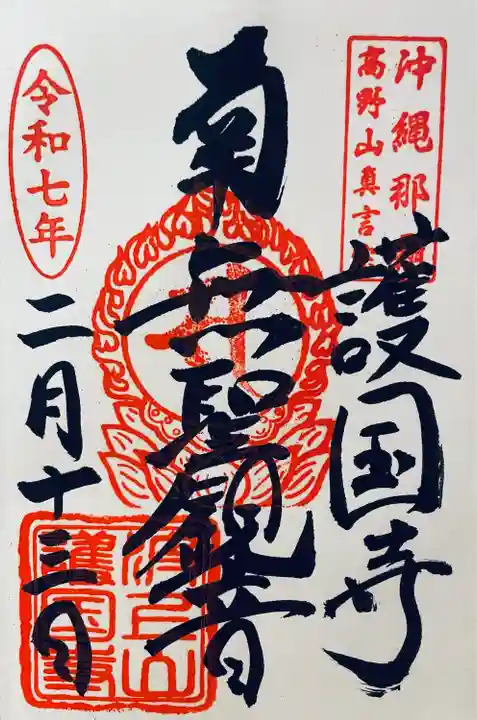 沖縄那
高野山眞言
護国寺
南無聖観音
令和七年
二月十三日
波上山
護国寺